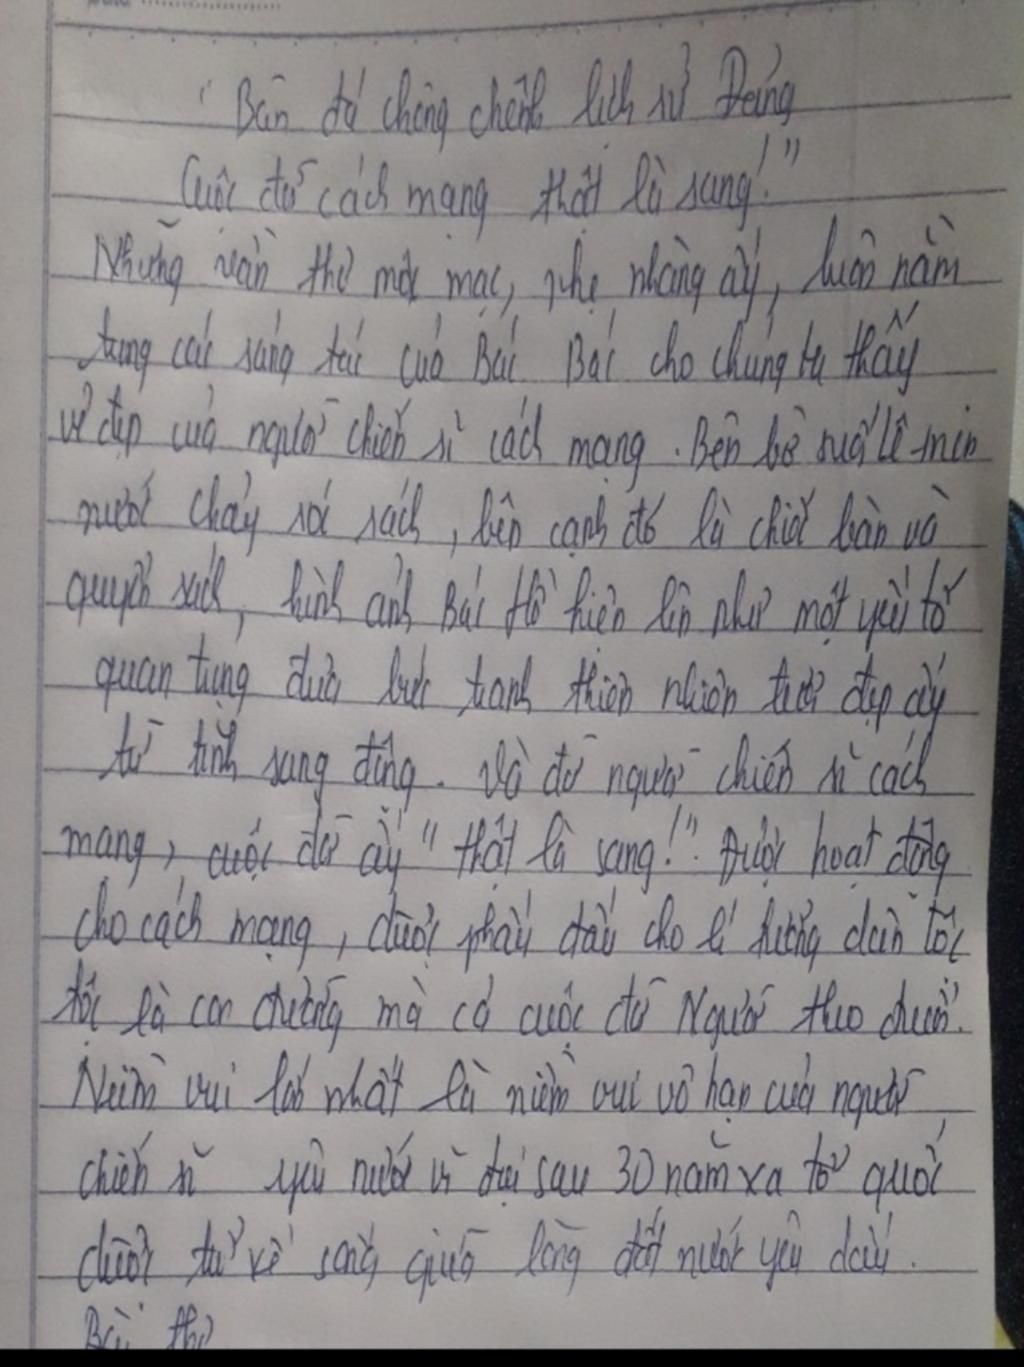 "Bàn đá chông chênh lịch sử Đảng
Cuộc đời cách mạng thật là sang!"
Những vần thơ mộc mạc, nhẹ nhàng ấy, luôn nằm
trong các sáng tác của Bác. Bác cho chúng ta thấy
vẻ đẹp của người chiến sĩ cách mạng. Bên bờ suối Lê-nin
nước chảy róc rách, bên cạnh đó là chiếc bàn và
quyển sách, hình ảnh Bác Hồ hiện lên như một yếu tố
quan trọng đưa bức tranh thiên nhiên tươi đẹp ấy
từ tĩnh sang động. Và đời người chiến sĩ cách
mạng, cuộc đời ấy "thật là sang!". Được hoạt động
cho cách mạng, được phấn đấu cho lí tưởng dân tộc
tộc là con đường mà cả cuộc đời Người theo đuổi.
Niềm vui lớn nhất là niềm vui vô hạn của người
chiến sĩ yêu nước vĩ đại sau 30 năm xa tổ quốc
được trở về sống giữa lòng đất nước yêu dấu.
Bài thơ